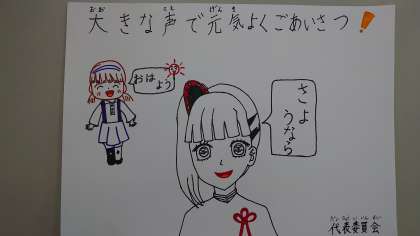 大きな声で元気よくごあいさつ!
おはよう
さようなら
代表委員会